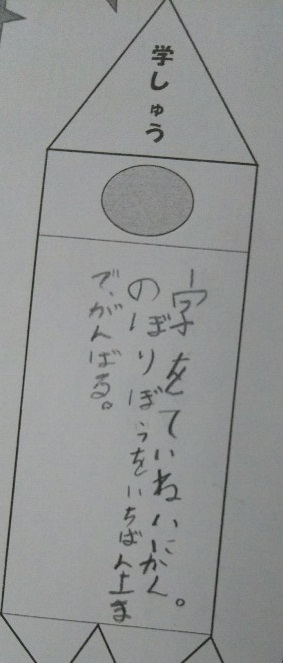 学しゅう
字をていねいにかく。
のぼりぼうをいちばん上ま
で、がんばる。